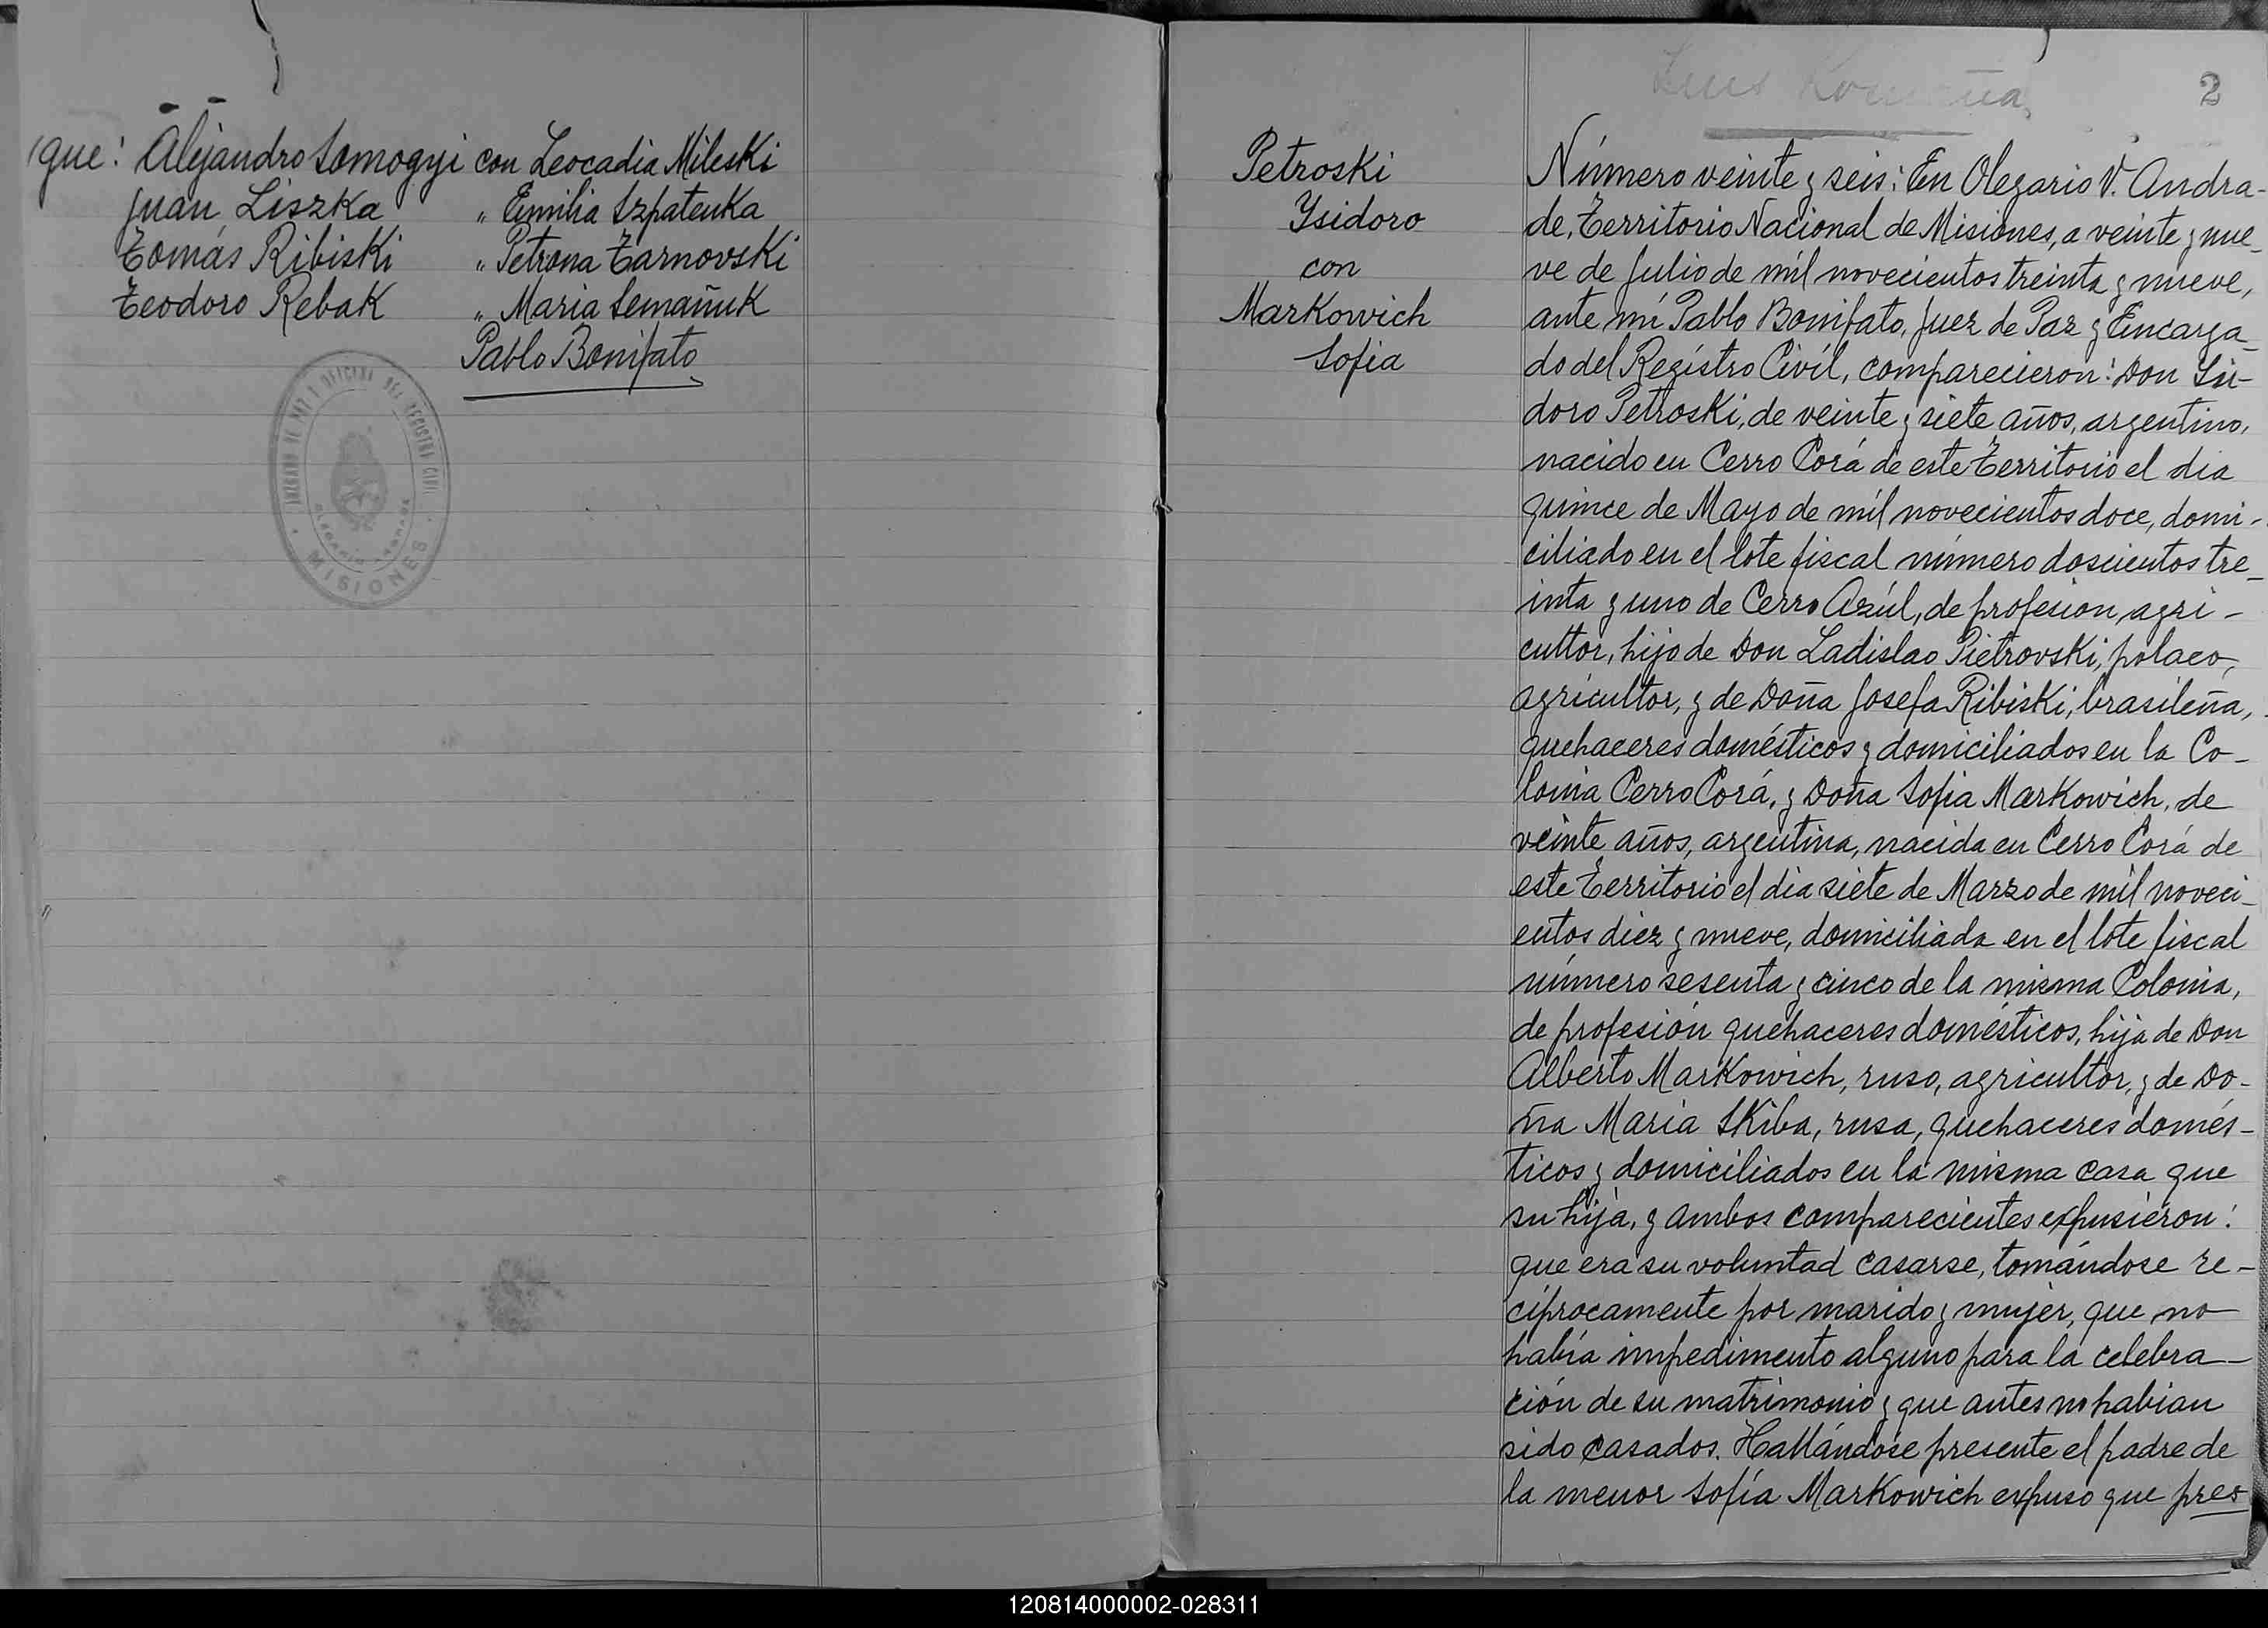 que: Alejandro Somogyi con Leocadia Mileski
Juan Liszka " Emilia Szpatenka
Tomás Ribiski " Petrona Tarnovski
Teodoro Rebak " Maria Semañuk
Pablo Bonifato
JUZGADO DE PAZ Y OFICINA DEL REGISTRO CIVIL
MISIONES
2
Petroski
Ysidoro
con
Markowich
Sofia
Número veinte y seis: En Olegario V. Andra-
de, Territorio Nacional de Misiones, a veinte y nue-
ve de Julio de mil novecientos treinta y nueve,
ante mí Pablo Bonifato, Juez de Paz y Encarga-
do del Registro Civil, comparecieron: Don Isi-
doro Petroski, de veinte y siete años, argentino,
nacido en Cerro Corá de este Territorio el dia
quince de Mayo de mil novecientos doce, domi-
ciliado en el lote fiscal número doscientos tre-
inta y uno de Cerro Azúl, de profesion agri-
cultor, hijo de Don Ladislao Pietrovski, polaco,
agricultor, y de Doña Josefa Ribiski, brasileña,
quehaceres domésticos y domiciliados en la Co-
lonia Cerro Corá, y Doña Sofia Markowich, de
veinte años, argentina, nacida en Cerro Corá de
este Territorio el dia siete de Marzo de mil noveci-
entos diez y nueve, domiciliada en el lote fiscal
número sesenta y cinco de la misma Colonia,
de profesión quehaceres domésticos, hija de Don
Alberto Markowich, ruso, agricultor, y de Do-
ña Maria Skiba, rusa, quehaceres domés-
ticos y domiciliados en la misma casa que
su hija, y ambos comparecientes expusieron:
que era su voluntad casarse, tomándose re-
ciprocamente por marido y mujer, que no
había impedimento alguno para la celebra-
ción de su matrimonio y que antes no habian
sido casados. Hallándose presente el padre de
la menor Sofía Markowich expuso que pres
120814000002-028311